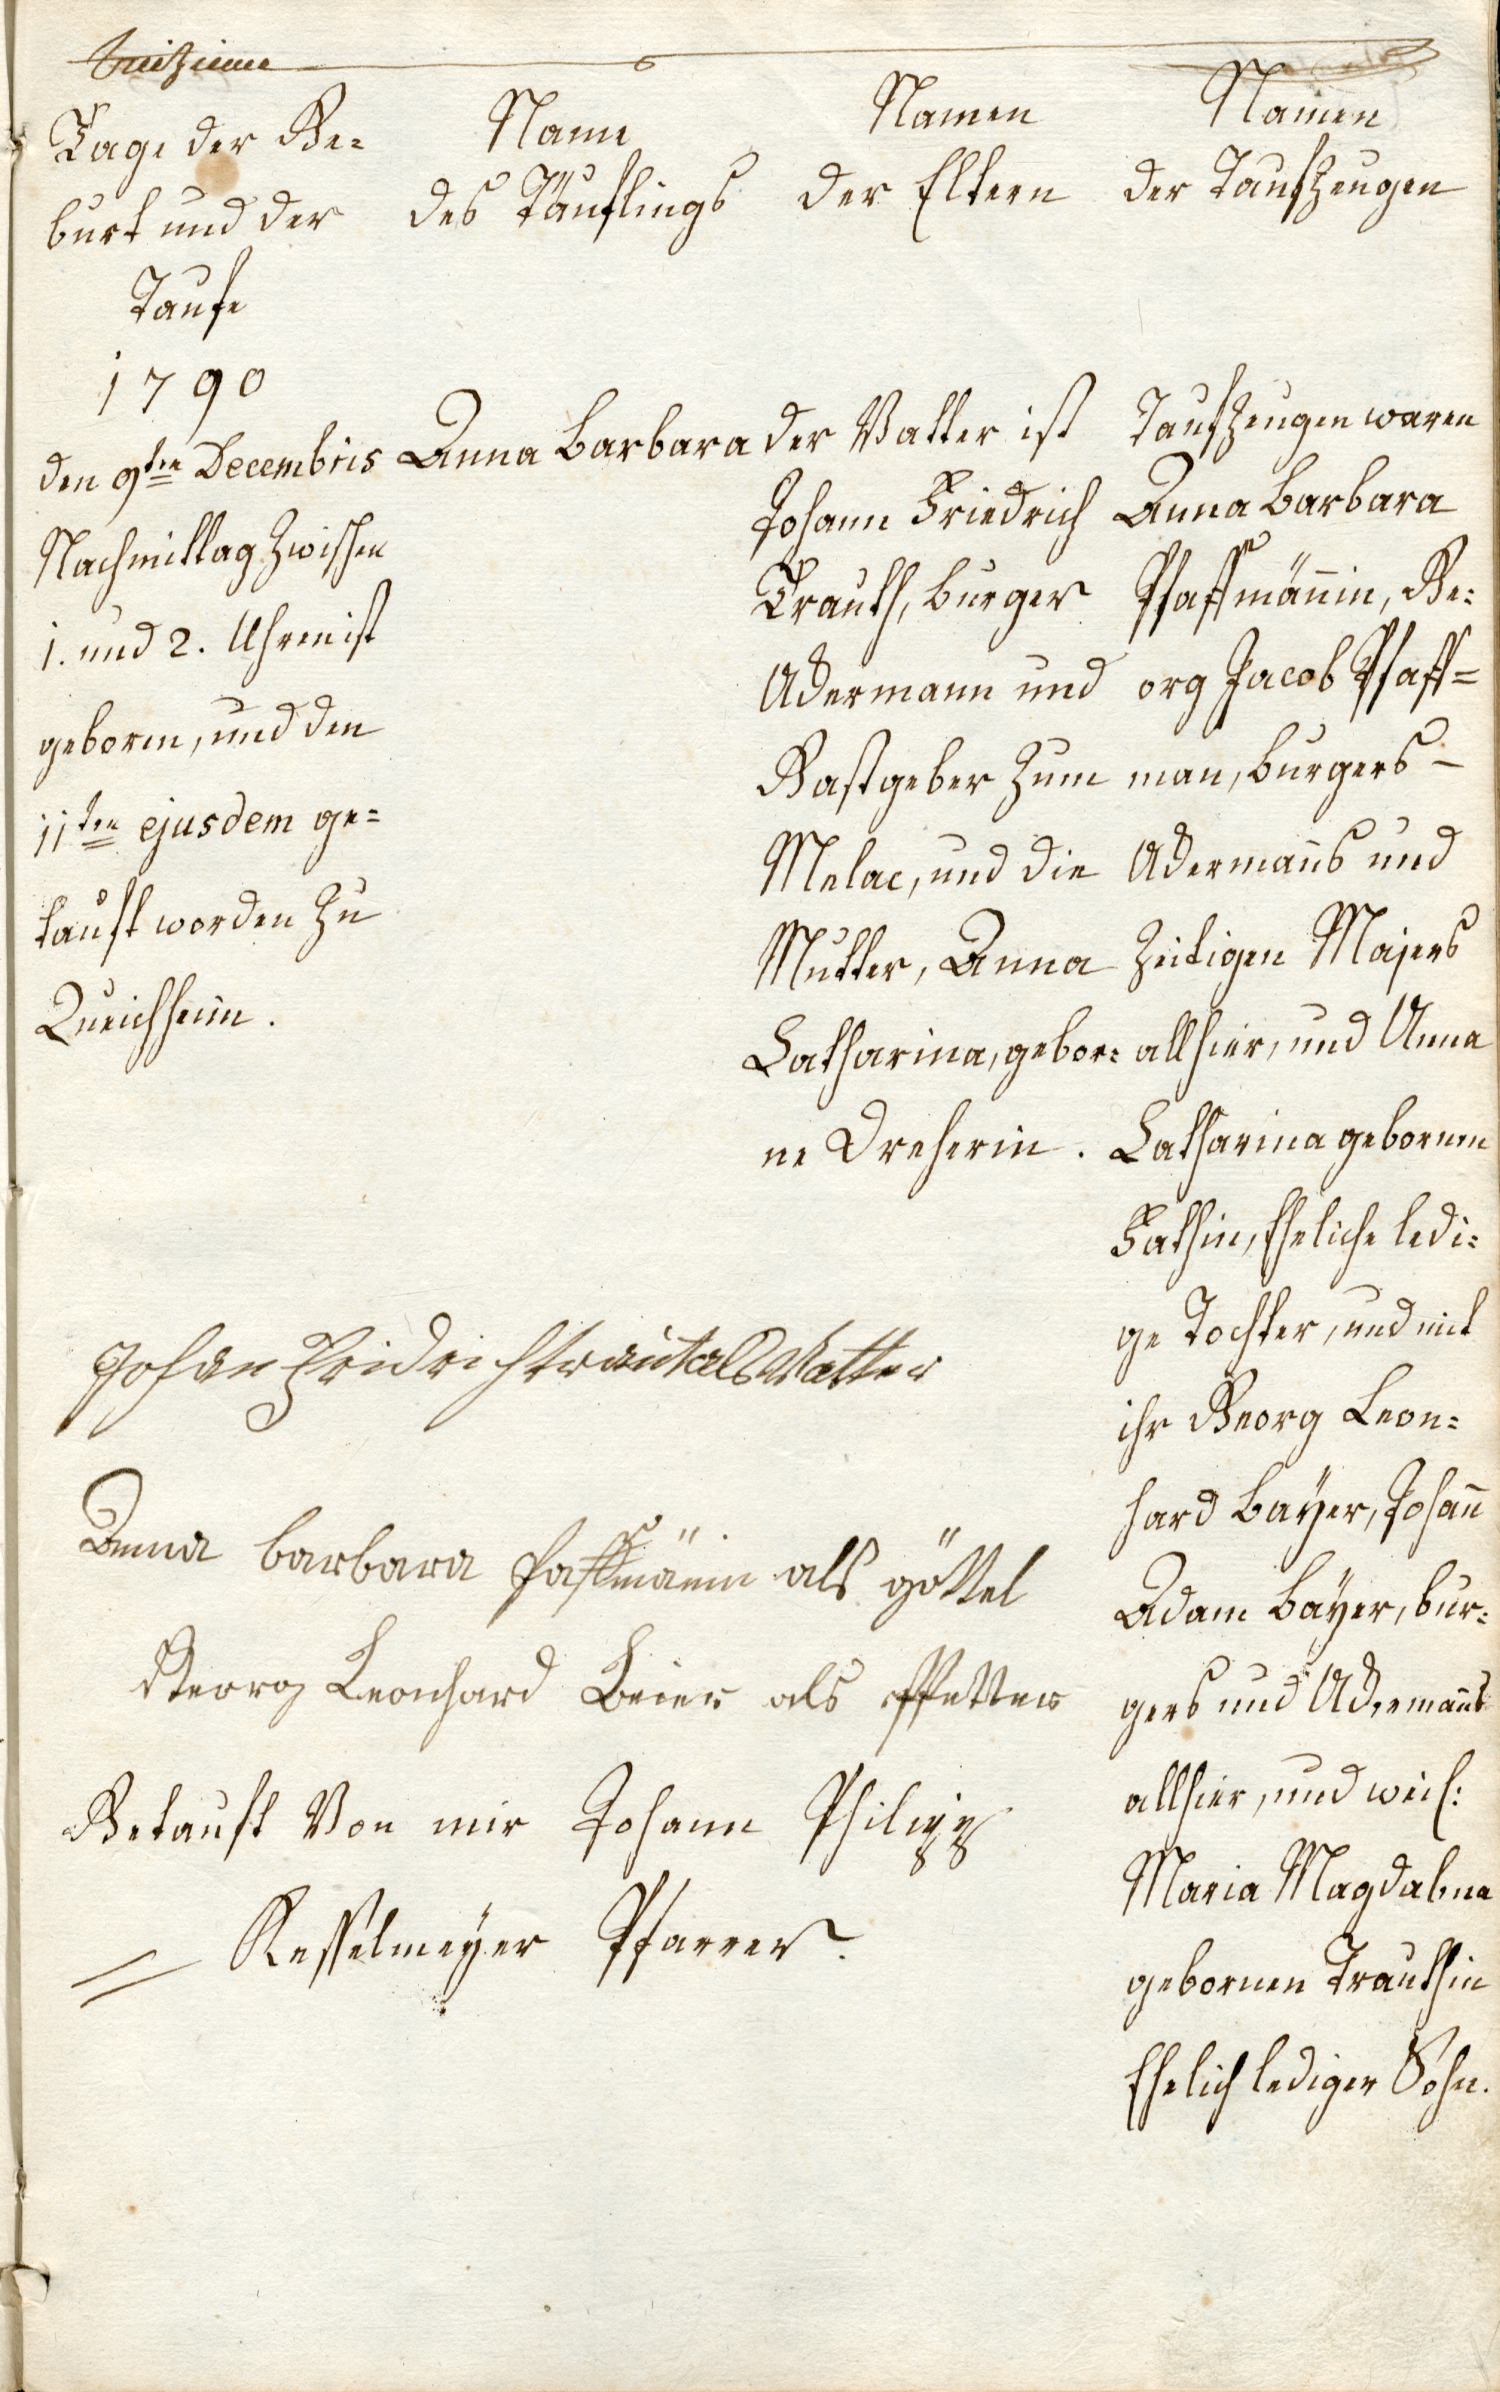 Treizieme
Tage der Ge=
burt und der
Taufe
1790
den 9ten Decembris
Nachmittag zwischen
1. und 2. Uhren ist
geboren, und den
11ten ejusdem ge=
tauft worden zu
Queichheim.
Name
des Täuflings
Anna Barbara
Namen
der Eltern
der Vatter ist
Johann Friedrich
Trauth, burger
Ackermann und
Gastgeber zum
Melac, und die
Mutter, Anna
Catharina, gebor=
ne Dreherin.
Namen
der Taufzeugen
Taufzeugen waren
Anna Barbara
Pfaffmännin, Ge=
org Jacob Pfaff=
man, burgers
Ackermanns und
zeitigen Majers
allhier, und Anna
Catharina gebornen
Fathin, Eheliche ledi=
ge Tochter, und mit
ihr Georg Leon=
hard Bayer, Johann
Adam Bayer, bur=
gers und Ackermanns
allhier, und weil:
Maria Magdalena
gebornen Trauthin
Ehelich lediger Sohn.
Johan Fridrich traut als Vatter
Anna barbara Paffmänin als göttel
Georg Leonhard Beier als Pfetter
Getauft Von mir Johann Philipp
Kesselmeyer Pfarrer.